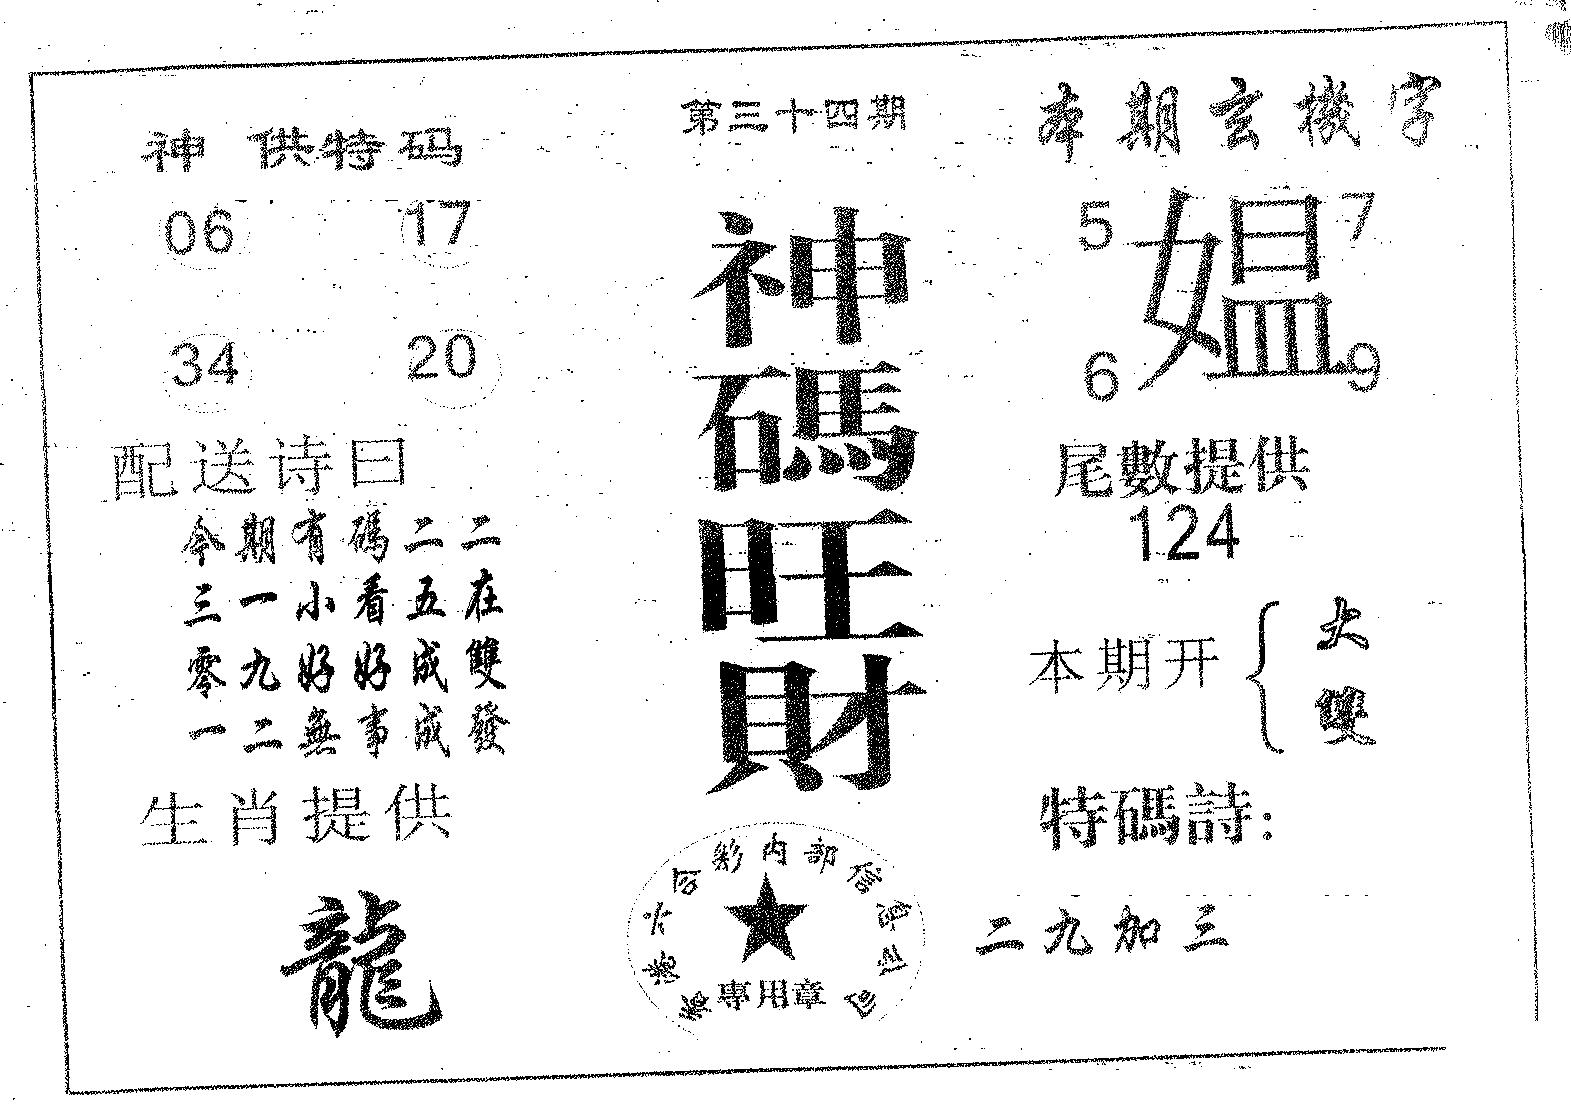 第三十四期
神供特码
06 17
34 20
配送诗曰
今期有碼二二
三一小看五在
零九好好成雙
一二無事成發
生肖提供
龍
神碼旺財
香港六合彩内部信息公司
專用章
本期玄機字
5 媪 7
6 9
尾數提供
124
本期开{大
雙
特碼詩:
二九加三